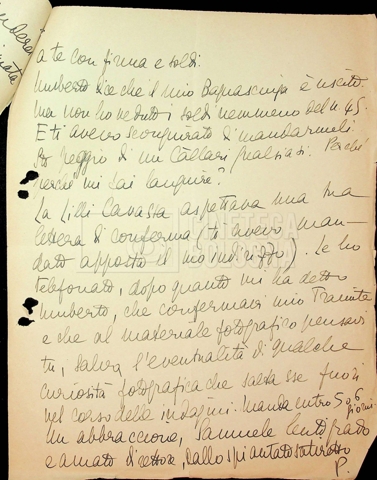 a te con firma e soldi.
Umberto dice che il mio è uscito.
ma non ho veduto i soldi nemmeno del n. 45.
E ti avevo scongiurato di mandarmeli
peggio di un Càllari qualsiasi. Perché
perché mi fai languire?
La Lilli Cavassa aspettava una tua
lettera di conferma (ti avevo man-
dato apposta il suo indirizzo). Le ho
telefonato, dopo quanto mi ha detto
Umberto, che confermavi mio tramite
e che al materiale fotografico pensavi
tu, salva l'eventualità di qualche
curiosità fotografica che saltasse fuori
nel corso delle indagini. Manda entro 5 o 6
giorni.
Un abbraccione,
e amato direttore, dallo spiantato
P.